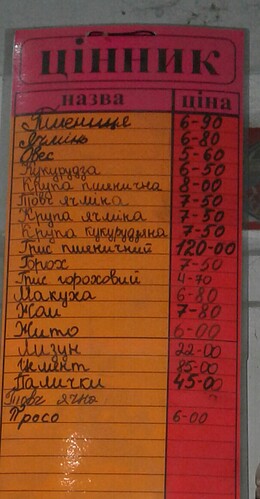 ЦІННИК
назва ціна
Пшениця 6-90
Ячмінь 6-80
Овес 5-60
Кукурудза 6-50
Крупа пшенична 8-00
Товч ячміна 7-50
Крупа ячміна 7-50
Крупа кукурудзяна 7-50
Грис пшеничний 120-00
Горох 7-50
Грис гороховий 4-70
Макуха 6-80
Жом 7-80
Жито 6-00
Лизун 22-00
Цемент 85-00
Палички 45-00
Товч ячна
Просо 6-00